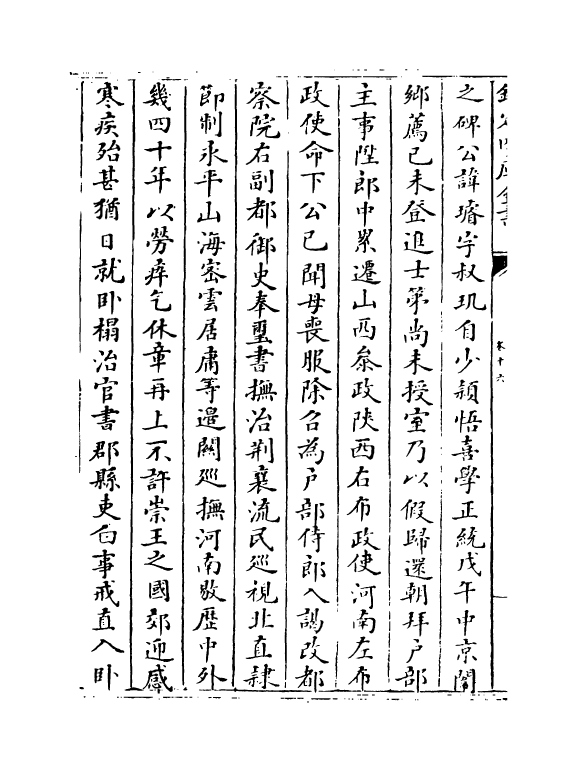 欽定四庫全書
卷十六
之碑公諱璿字叔玑自少穎悟喜學正統戊午中京闈
鄉薦己未登進士第尚未授室乃以假歸還朝拜户部
主事陞郎中累遷山西叅政陜西右布政使河南左布
政使命下公已聞母喪服除召為户部侍郎入謁改都
察院右副都御史奉璽書撫治荆襄流民廵視北直隸
節制永平山海宻雲居庸等邉關廵撫河南敭歴中外
幾四十年以勞瘁乞休章再上不許崇王之國郊迎感
寒疾殆甚猶日就卧榻治官書郡縣吏白事戒直入卧